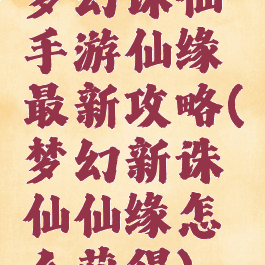 梦幻诛仙
手游仙缘
最新攻略(
梦幻新诛
仙仙缘怎
么获得)